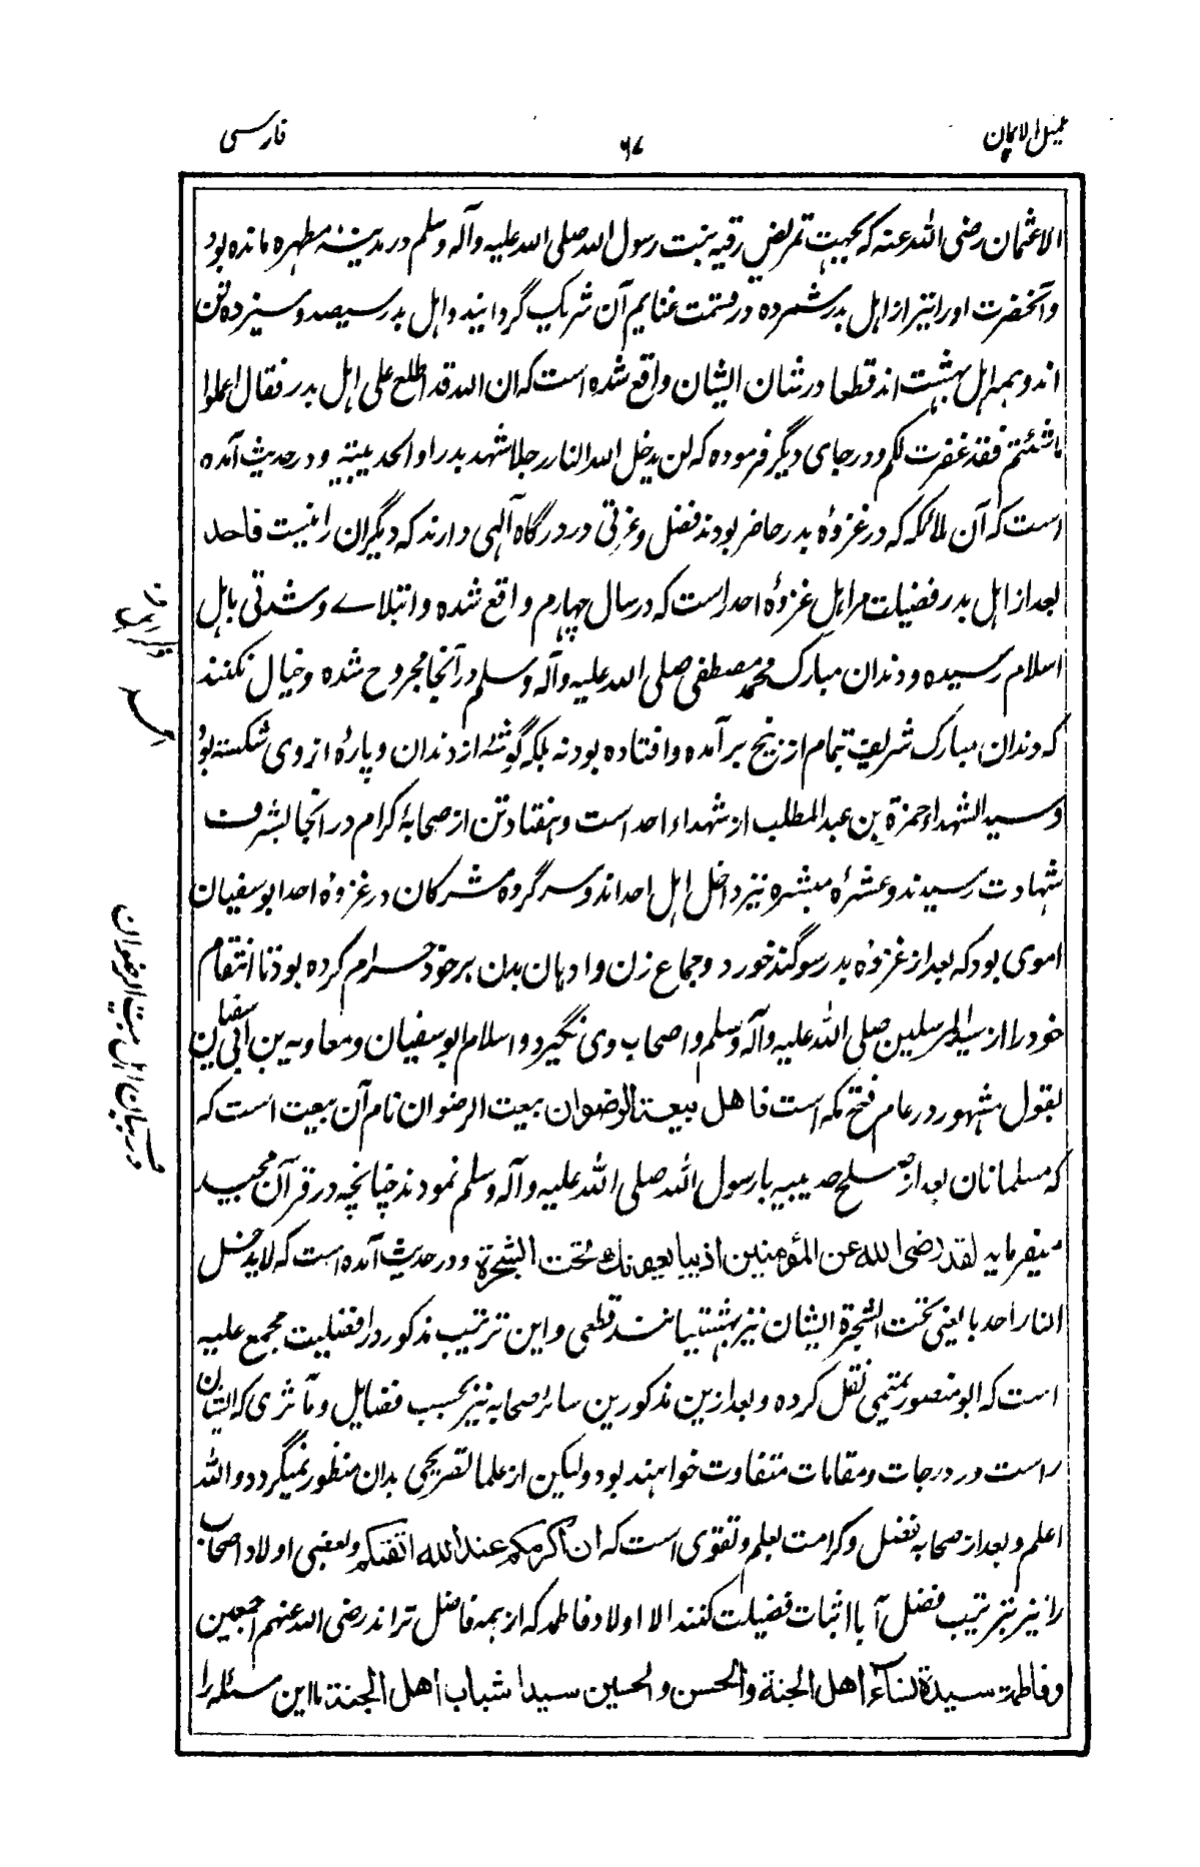 تکمیل الایمان
۶۷
فارسی
الا عثمان رضی الله عنه که بجهت تمریض رقیه بنت رسول الله صلی الله علیه وآله وسلم در مدینهٔ مطهره مانده بود
وآنحضرت اورا نیز از اهل بدر شمرده در قسمت غنایم آن شریک گردانید واهل بدر سیصد وسیزده تن
اند وهمه اهل بهشت اند قطعا در شان ایشان واقع شده است که ان الله قد اطلع علی اهل بدر فقال اعملوا
ما شئتم فقد غفرت لکم ودر جای دیگر فرموده که لن یدخل الله النار رجلا شهد بدرا والحدیبیة ودر حدیث آمده
است که آن ملائکه که در غزوهٔ بدر حاضر بودند فضل وعزتی در درگاه آلهی دارند که دیگران را نیست فاحد
بعد از اهل بدر فضیلت مر اهل غزوهٔ احد است که در سال چهارم واقع شده وابتلاے وشدتی باهل
اسلام رسیده ودندان مبارک محمد مصطفی صلی الله علیه وآله وسلم در آنجا مجروح شده وخیال نکنند
که دندان مبارک شریف بتمام از بیخ بر آمده وافتاده بود نه بلکه گوشهٔ از دندان وپارهٔ از وی شکسته بود
وسید الشهداء حمزة بن عبدالمطلب از شهداء احد است وهفتاد تن از صحابهٔ کرام در انجا بشرف
شهادت رسیدند وعشرهٔ مبشره نیز داخل اهل احد اند وسر گروه مشرکان در غزوهٔ احد ابوسفیان
اموی بود که بعد از غزوهٔ بدر سوگند خورد وجماع زن وادهان بدن بر خود حرام کرده بود تا انتقام
خود را از سید المرسلین صلی الله علیه وآله وسلم واصحاب وی نگیرد واسلام ابوسفیان ومعاویه بن ابی سفیان
بقول مشهور در عام فتح مکه است فاهل بیعة الرضوان بیعت الرضوان نام آن بیعت است که
که مسلمانان بعد از صلح حدیبیه با رسول الله صلی الله علیه وآله وسلم نمودند چنانچه در قرآن مجید
میفرماید لقد رضی الله عن المؤمنین اذ یبایعونك تحت الشجرة ودر حدیث آمده است که لا یدخل
النار احد بایعنی تحت الشجرة ایشان نیز بهشتیانند قطعی واین ترتیب مذکور در افضلیت مجمع علیه
است که ابو منصور تمیمی نقل کرده وبعد ازین مذکورین سائر صحابه نیز بحسب فضایل ومآثری که ایشان
راست در درجات ومقامات متفاوت خواهند بود ولیکن از علما تصریحی بدان منظور نمیگردد والله
اعلم وبعد از صحابه فضل وکرامت بعلم وتقوی است که ان اکرمکم عند الله اتقکم وبعضی اولاد اصحاب
را نیز بترتیب فضل آبا اثبات فضیلت کنند الا اولاد فاطمه که از همه فاضل تر اند رضی الله عنهم اجمعین
وفاطمة سیدة نساء اهل الجنة والحسن والحسین سیدا شباب اهل الجنة ما این مسئله را
در بیان اهل بیت الرضوان